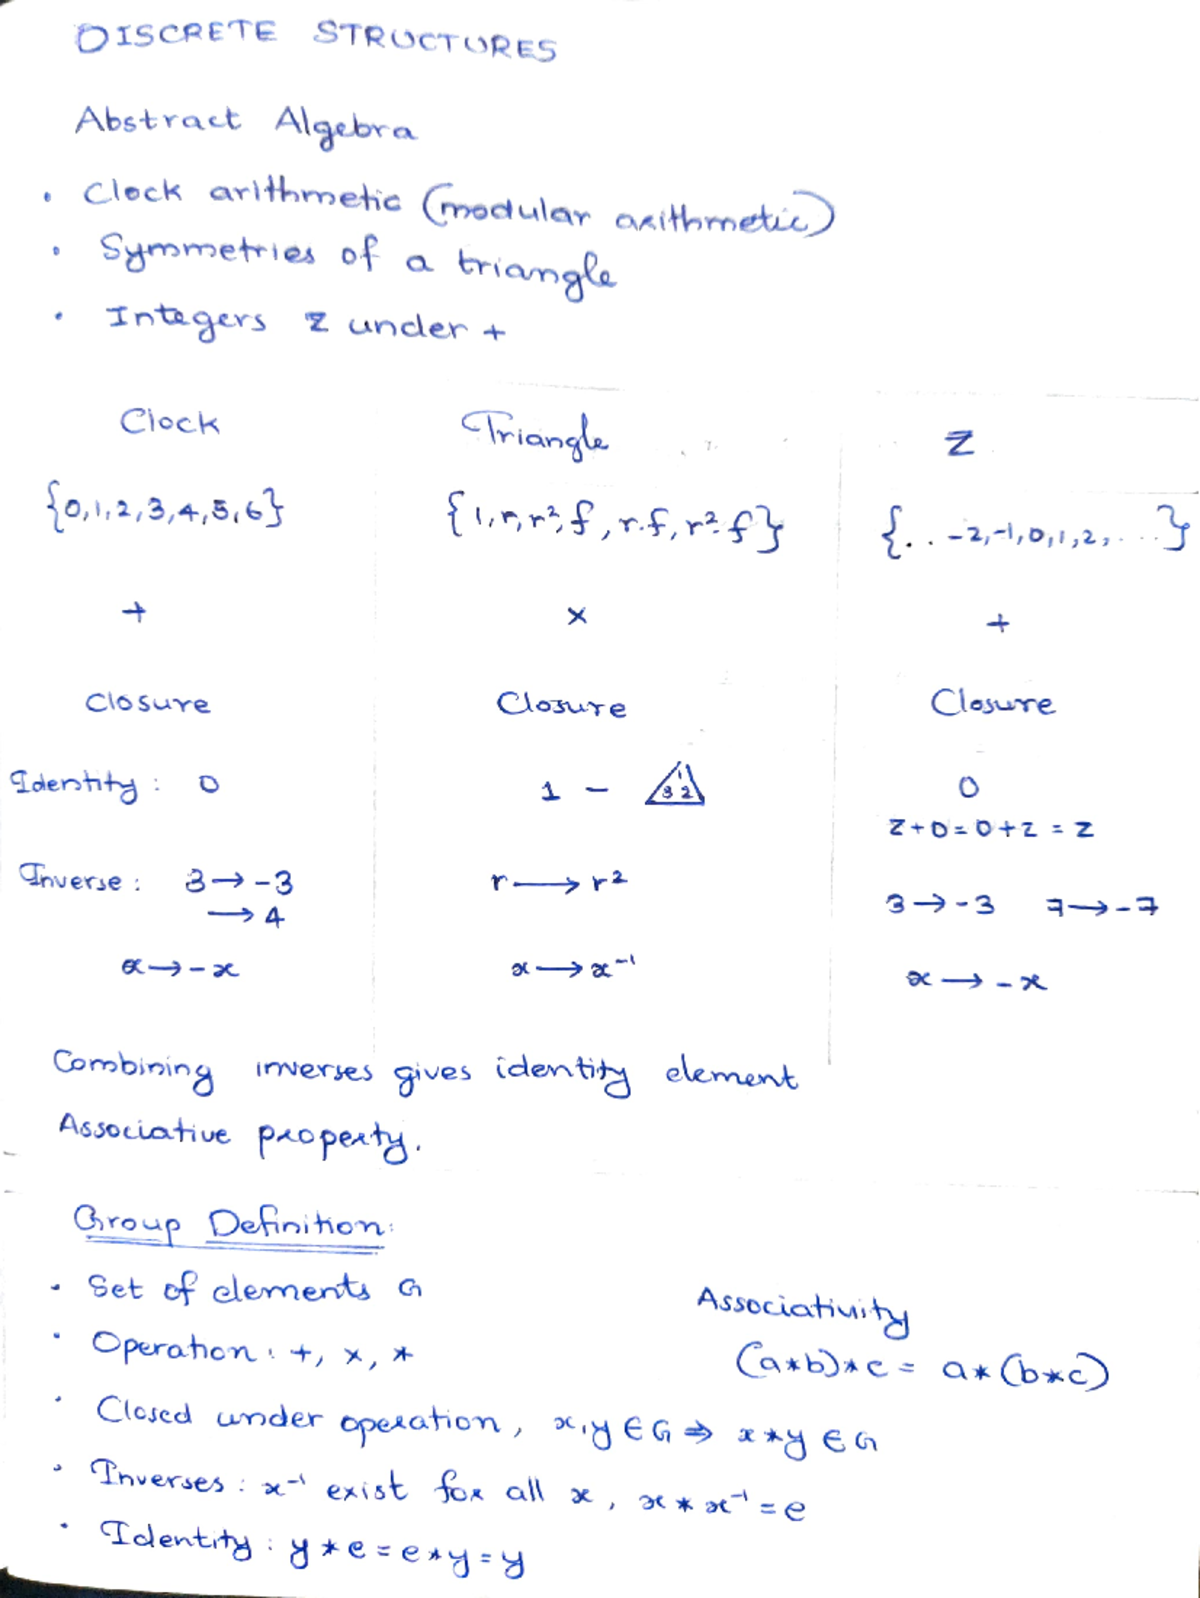 DISCRETE STRUCTURES
Abstract Algebra
• Clock arithmetic (modular arithmetic)
• Symmetries of a triangle
• Integers Z under +
Clock Triangle Z
{0,1,2,3,4,5,6} {1,r,r²,f,r.f,r².f} {.. -2,-1,0,1,2,...}
+ × +
Closure Closure Closure
Identity: 0 1 - 1 3 2 0
Z+0=0+Z=Z
Inverse: 3→-3 r→r² 3→-3 7→-7
→4
x→-x x→x⁻¹ x→-x
Combining inverses gives identity element
Associative property.
Group Definition:
• Set of elements G
Associativity
• Operation: +, ×, *
(a*b)*c = a*(b*c)
• Closed under operation, x,y ∈ G ⇒ x*y ∈ G
• Inverses: x⁻¹ exist for all x, x*x⁻¹=e
• Identity: y*e=e*y=y